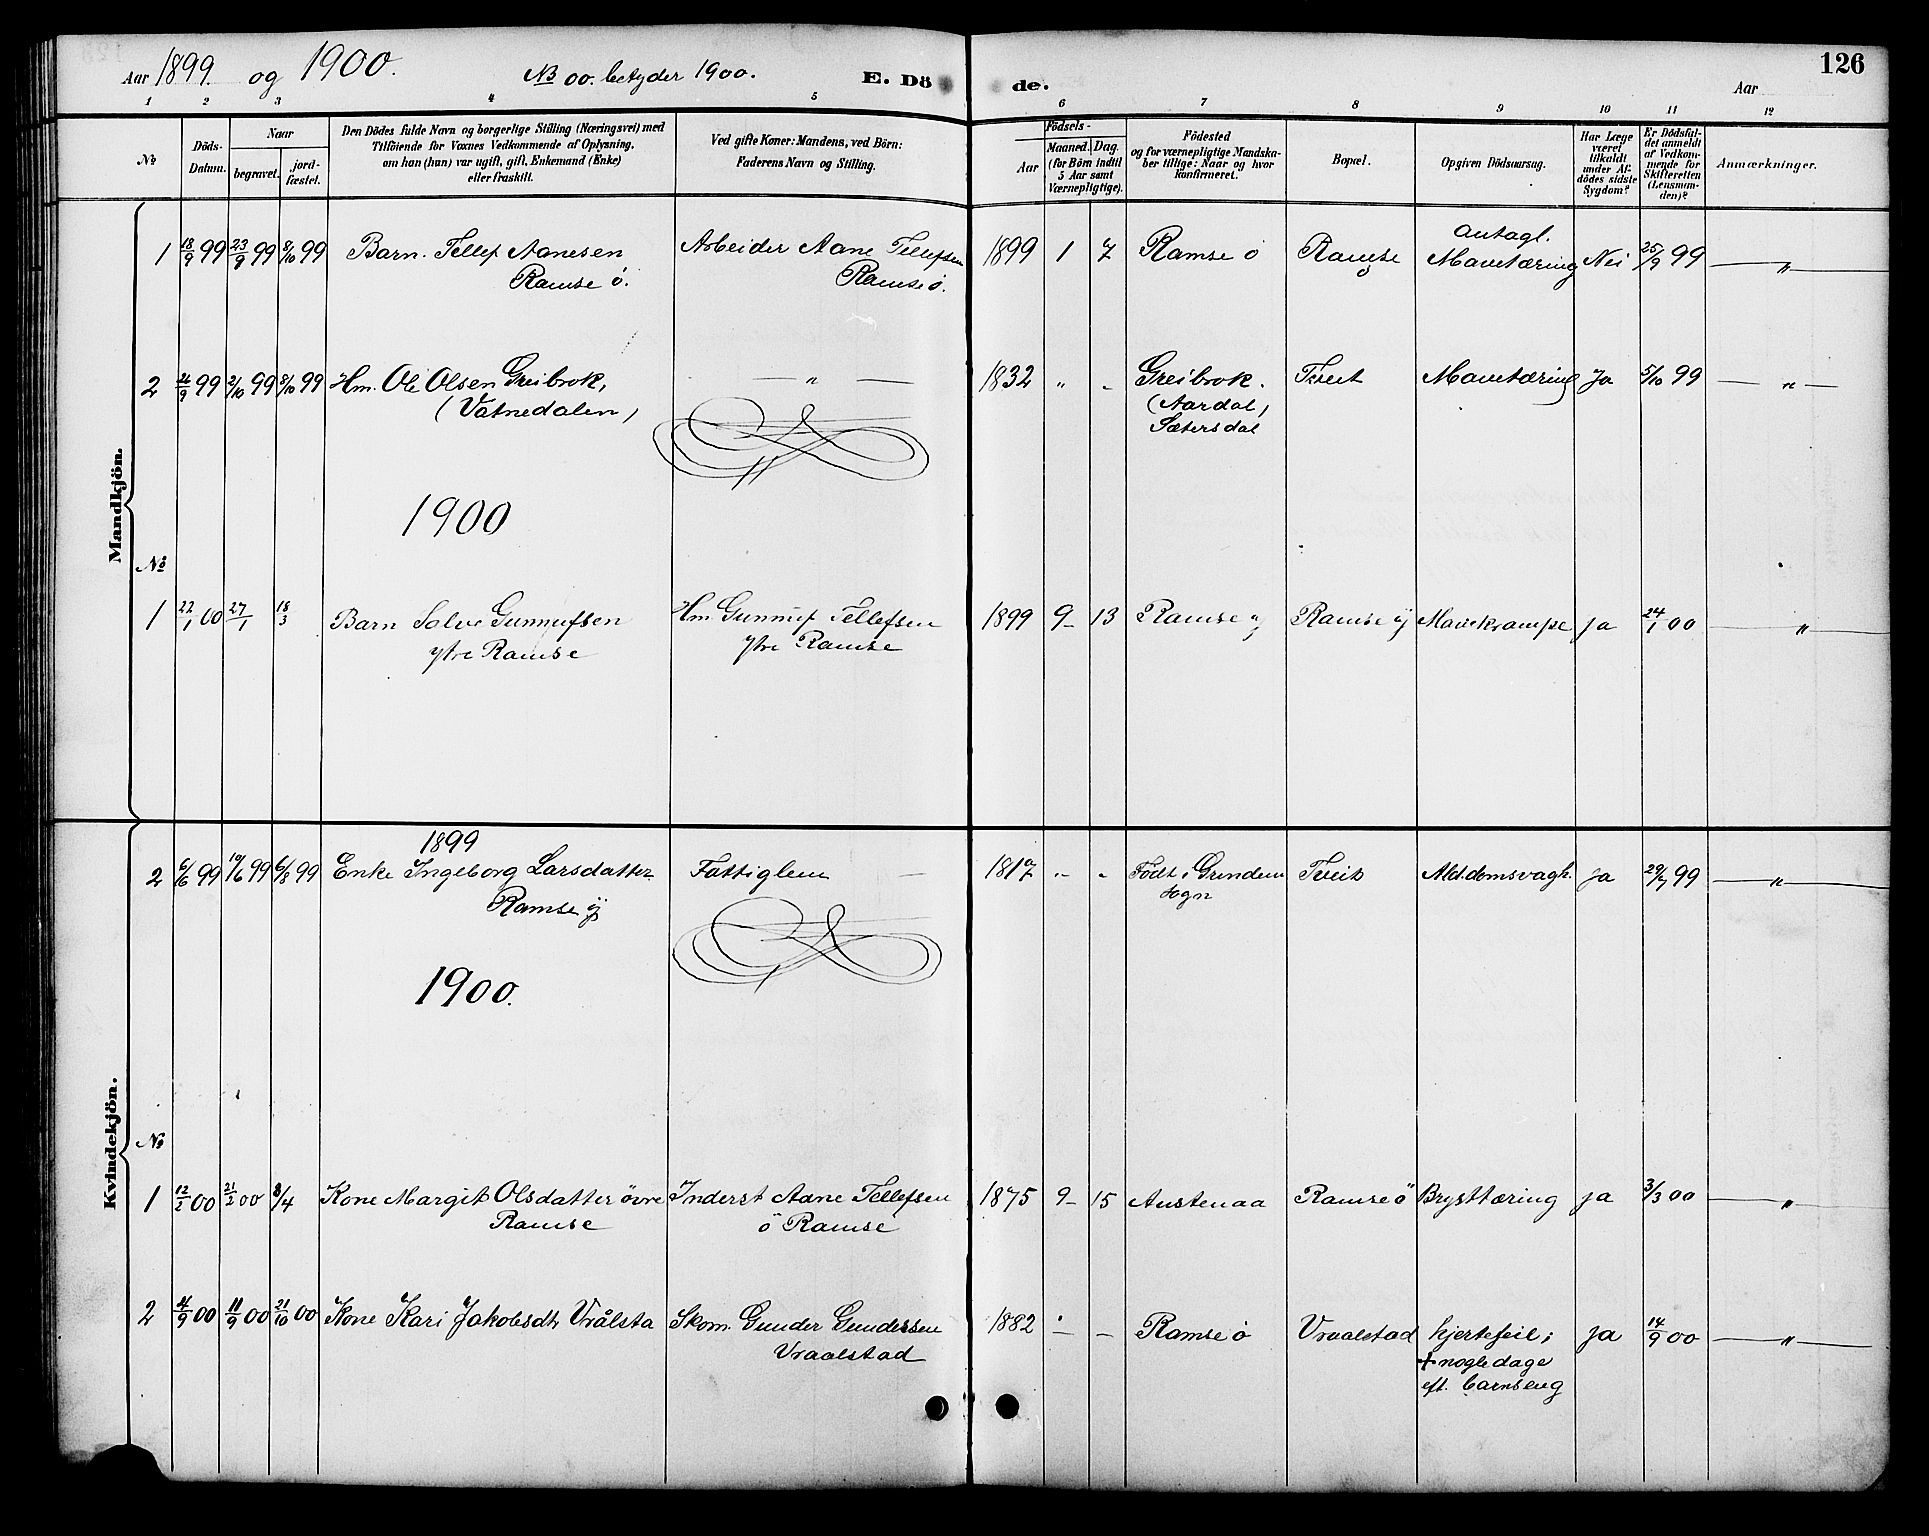 Aar 1899. og 1900. NB 00. betyder 1900. E. Döde. Aar 126
1 2 3 4 5 6 7 8 9 10 11 12
No
Döds-
Datum.
Naar
begravet.
jord-
fæstet.
Den Dödes fulde Navn og borgerlige Stilling (Næringsvei) med
Tilföiende for Voxnes Vedkommende af Oplysning,
om han (hun) var ugift, gift, Enkemand (Enke)
eller fraskilt.
Ved gifte Koner: Mandens, ved Börn:
Faderens Navn og Stilling.
Födsels-
Aar
Maaned. Dag.
(for Börn indtil
5 Aar samt
Værnepligtige).
Födested
og for værnepligtige Mandska-
ber tillige: Naar og hvor
konfirmeret.
Bopæl.
Opgiven Dödsaarsag.
Har Læge
været
tilkaldt
under Af-
dödes sidste
Sygdom?
Er Dödsfal-
det anmeldt
af Vedkom-
mende for
Skifteretten
(Lensman-
den)?
Anmærkninger.
Mandkjön.
1 18/9 99 23/9 99 8/10 99 Barn. Tellef Aanesen Arbeider Aane Tellefsen 1899 1 7 Ramse ö Ramse ö antagl. Mavetæring Nei 25/9 99 — " —
Ramse ö. Ramse ö.
2 26/9 99 2/10 99 8/10 99 Hm. Ole Olsen Greibrok, — " — 1832 " " Greibrok. Tveit Mavetæring Ja 5/10 99 — " —
(Vatnedalen) (Aardal)
Sætersdal
1900
No
1 22/1 00 27/1 18/3 Barn Solve Gunnufsen Hm. Gunnuf Tellefsen 1899 9 - 13 Ramse y Ramse y Mavekrampe ja 24/1 00 — " —
ytre Ramse ytre Ramse
Kvindekjön.
1899
2 6/6 99 10/6 99 6/8 99 Enke Ingeborg Larsdatter Fattiglem — 1817 " " Födt i Tveit Ald.domsvagh. ja 29/7 99 — " —
Ramse y sogn
1900.
No
1 12/2 00 21/2 00 8/4 Kone Margit Olsdatter övre Inderst Aane Tellefsen 1875 9 - 15 Austenaa Ramse ö Brysttæring ja 3/3 00 — " —
Ramse ö Ramse
2 4/9 00 11/9 00 21/10 00 Kone Kari Jakobsdtr Vrålsta Skom. Gunder Gundersen 1882 - - Ramse ö Vraalstad hjertefeil; ja 14/9 00 — " —
Vraalstad + nogle dage
eft. barnseng